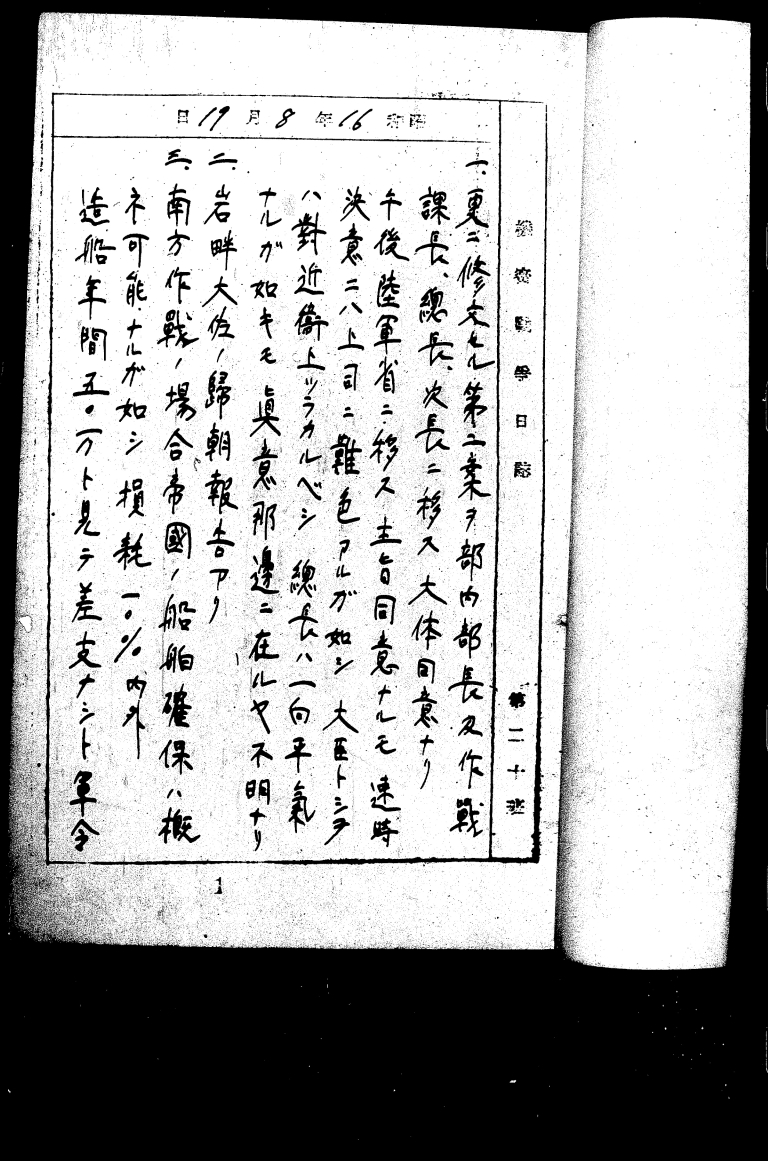 機密戰爭日誌 第二十班
昭和16年8月19日
一、更ニ修文セル第二案ヲ部内部長及作戰
課長、總長、次長ニ移ス大体同意ナリ
午後陸軍省ニ移ス主旨同意ナルモ速時
決意ニハ上司ニ難色アルガ如シ大臣トシテ
ハ對近衞上ツラカルベシ 總長ハ一向平氣
ナルガ如キモ眞意那邊ニ在ルヤ不明ナリ
二、岩畔大佐ノ歸朝報告アリ
三、南方作戰ノ場合帝國ノ船舶確保ハ概
ネ可能ナルガ如シ損耗一〇%内外
造船年間五〇万ト見テ差支ナシト軍令
1